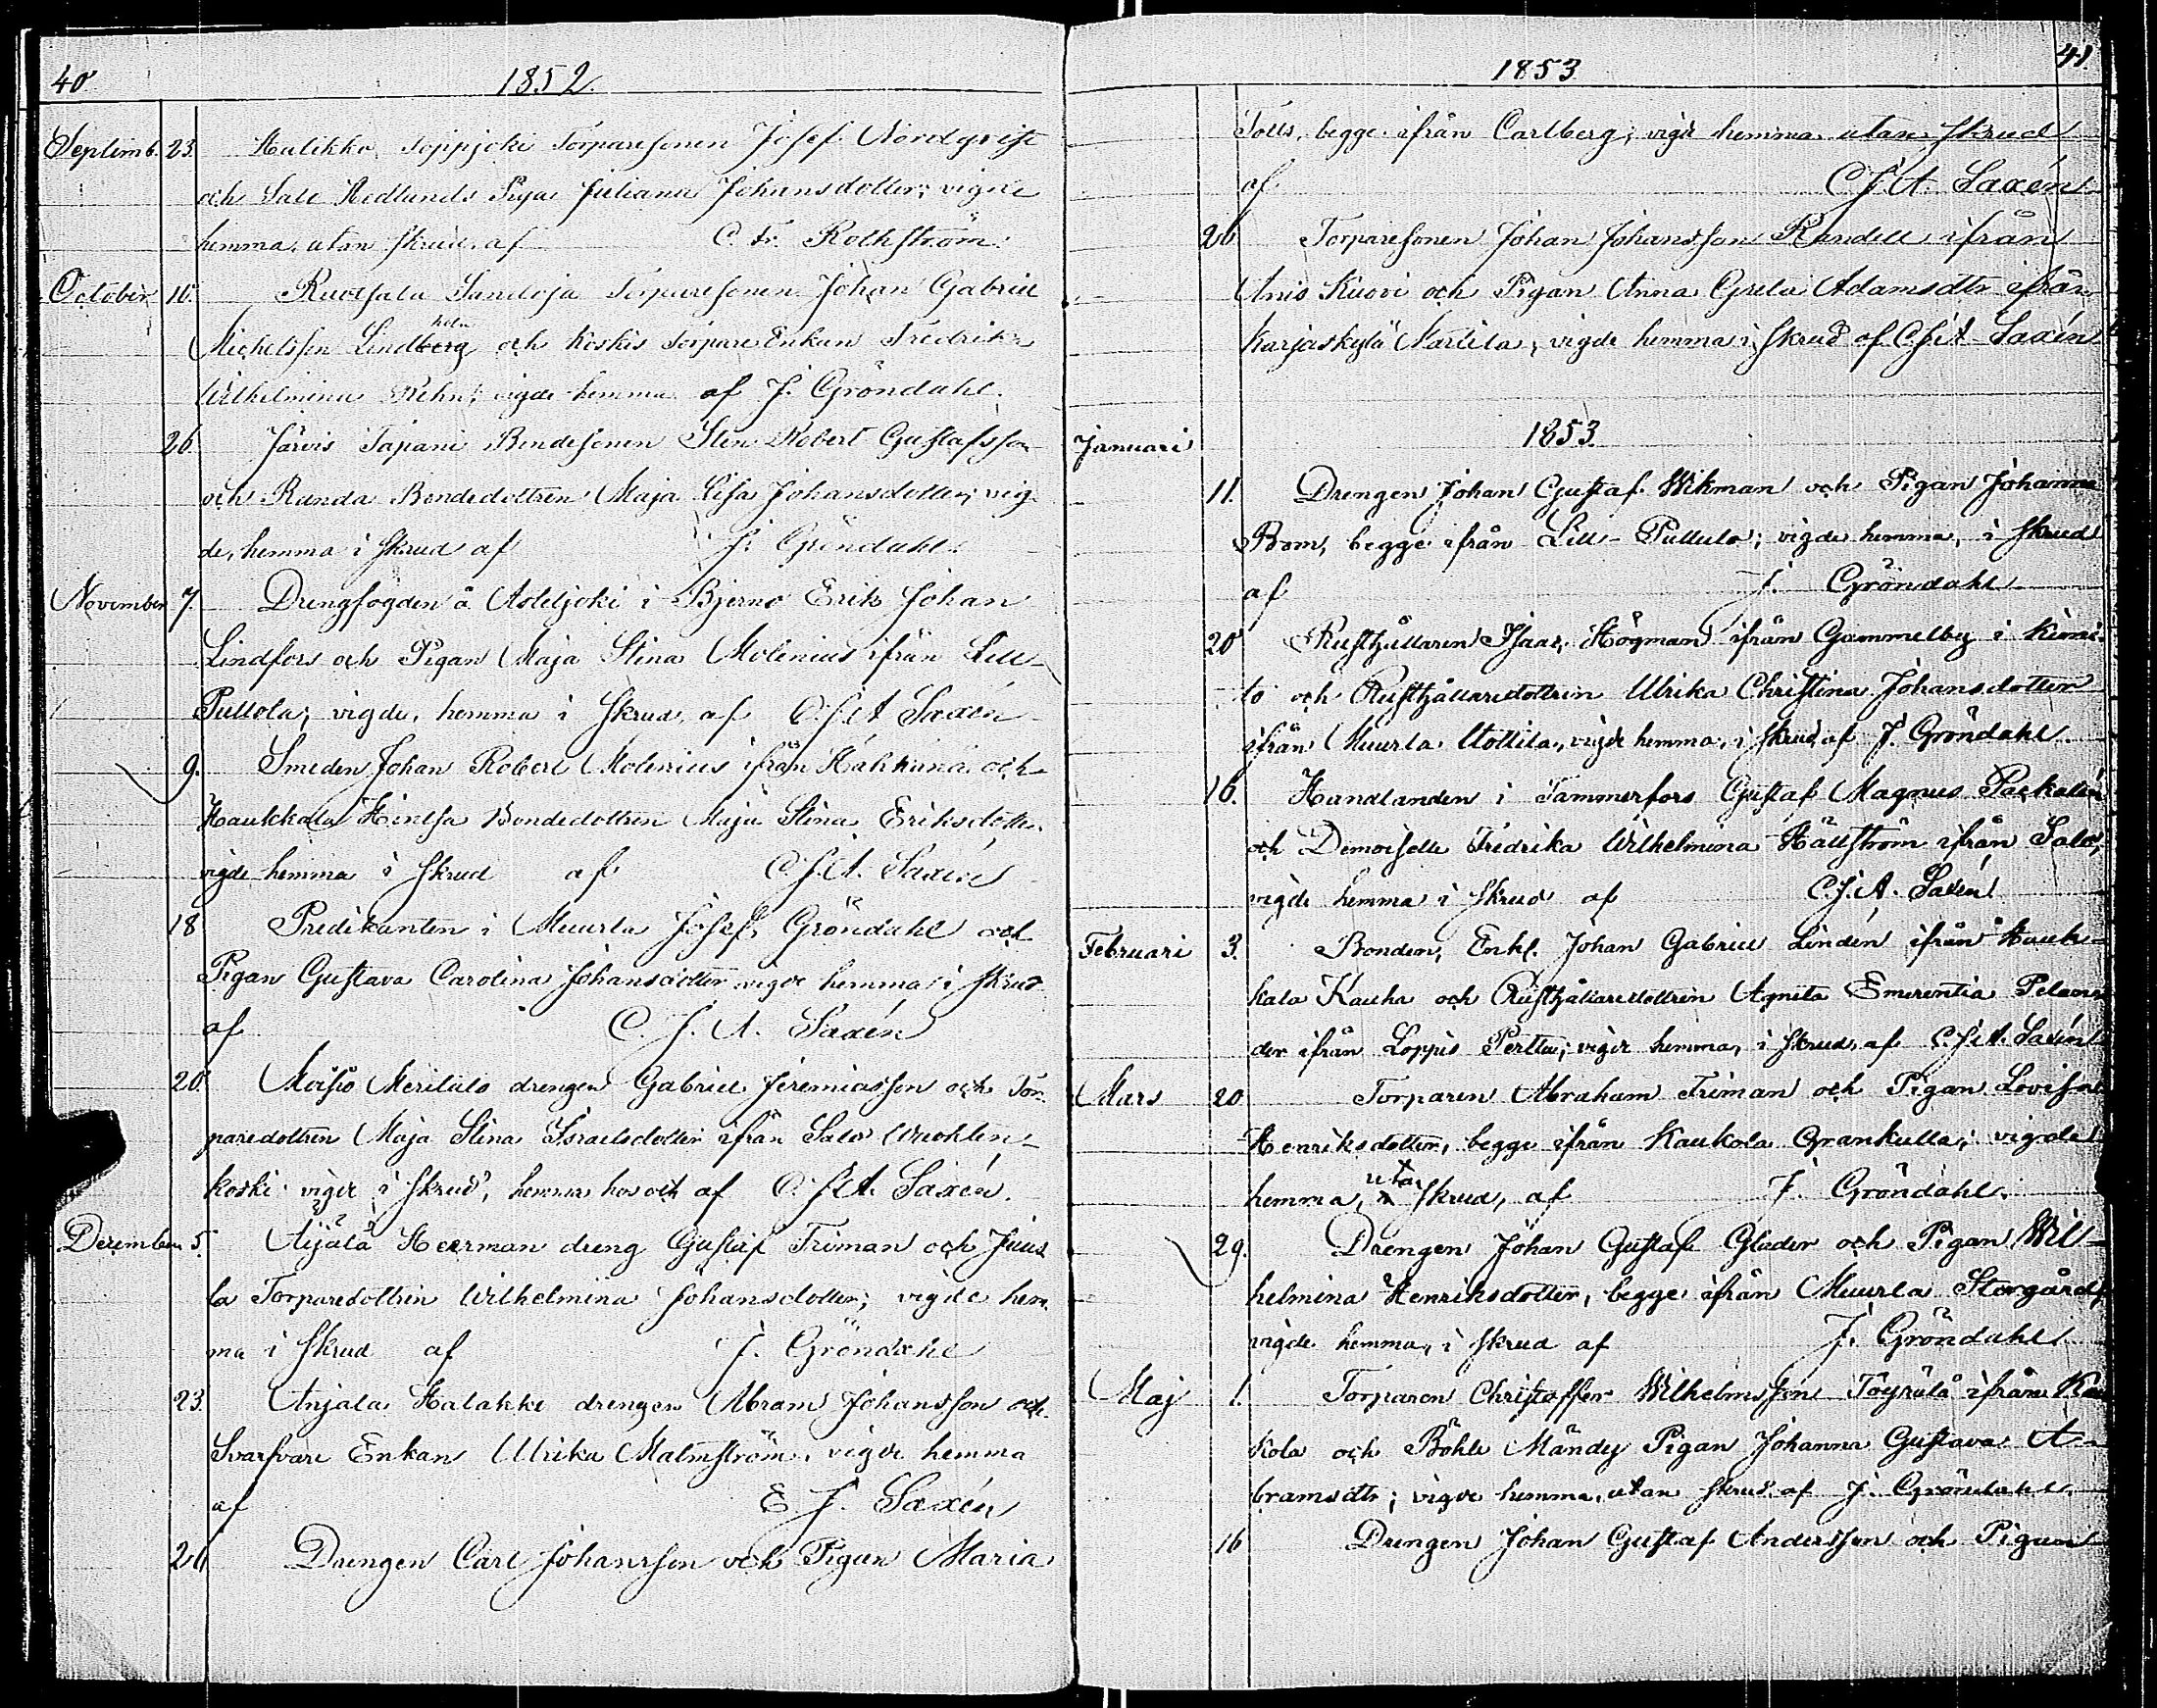 40.
1852.
Septemb. 23. Halikko Toppjoki Torparesonen Josef Nordqvist
och Salo Hedlunds Piga Juliana Johansdotter; vigde
hemma, utan skrud, af C. Fr. Rothström.
October 10. Ruotsala Sandoja Torparesonen Johan Gabriel
holm
Michelsson Lindberg och Koskis Torpare Enkan Fredrika
Wilhelmina Rehn; vigde hemma af J. Gröndahl.
26. Järvis Tapani Bondesonen Sten Robert Gustafsson
och Randa Bondedottren Maja Lisa Johansdotter; vig-
de, hemma i skrud af J. Gröndahl.
November 7. Drengfogden å Adeljoki i Bjerno Erik Johan
Lindfors och Pigan Maja Stina Molenius ifrån Lill-
Pullola; vigde, hemma i skrud, af C.J.A. Saxén
9. Smeden Johan Robert Molenius ifrån Hakkana och
Haukkala Hintsa Bondedottren Maja Stina Eriksdotter
vigde hemma i skrud af C.J.A. Saxén
18 Predikanten i Muurla Josef Gröndahl och
Pigan Gustava Carolina Johansdotter vigde hemma i skrud
af C. J. A. Saxén
20. Moisio Meritalo drengen Gabriel Jeremiasson och Tor-
paredottren Maja Stina Israelsdotter ifrån Salo Wuohten-
koski vigde i skrud, hemma hos och af C.J.A. Saxén.
December 5. Äijälä Heerman dreng Gustaf Friman och Juus
la Torparedottren Wilhelmina Johansdotter; vigde hem-
ma i skrud af J. Gröndahl
23. Anjala Halakke drengen Abram Johansson och
Svarfvare Enkan Ulrika Malmström, vigde hemma
af E J. Saxén
26 Drengen Carl Johansson och Pigan Maria
1853
41.
Tolls, begge ifrån Carlberg; vigde hemma utan skrud
af C.J.A. Saxén
26 Torparesonen Johan Johansson Randell ifrån
Anis Kuovi och Pigan Anna Greta Adamsdtr ifrån
Karjaskylä Martila, vigde hemma i skrud af C.J.A Saxén
Januari 1853.
11. Drengen Johan Gustaf Wikman och Pigan Johanna
Bom, begge ifrån Lill-Pullola; vigde hemma, i skrud
af J. Gröndahl
20 Rusthållaren Isaac Högman ifrån Gammelby i Kimi-
to och Rusthållaredottren Ulrika Christina Johansdotter
ifrån Muurla Uottila, vigde hemma, i skrud, af J. Gröndahl.
16. Handlanden i Tammerfors Gustaf Magnus Packalén
och Demoiselle Fredrika Wilhelmina Hällström ifrån Salo,
vigde hemma i skrud af C.J.A. Saxén
Februari 3. Bonden, Enkl. Johan Gabriel Lindén ifrån Hauk-
kala Kauha och Rusthållaredottren Agneta Emerentia Pelan-
der ifrån Loppis Pertta; vigde hemma, i skrud, af C.J.A. Saxén
Mars 20 Torparen Abraham Friman och Pigan Lovisa
Henriksdotter, begge ifrån Kaukola Grankulla; vigde
utan
hemma, skrud, af J. Gröndahl.
29. Drengen Johan Gustaf Glader och Pigan Wil-
helmina Henriksdotter, begge ifrån Muurla Storgård,
vigde hemma, i skrud af J. Gröndahl
Maj 1. Torparen Christoffer Wilhelmsson Töyrälä ifrån Kau
kola och Böhle Mändy Pigan Johanna Gustava A-
bramsdtr; vigde hemma, utan skrud af J. Gröndahl
16 Drengen Johan Gustaf Andersson och Pigan